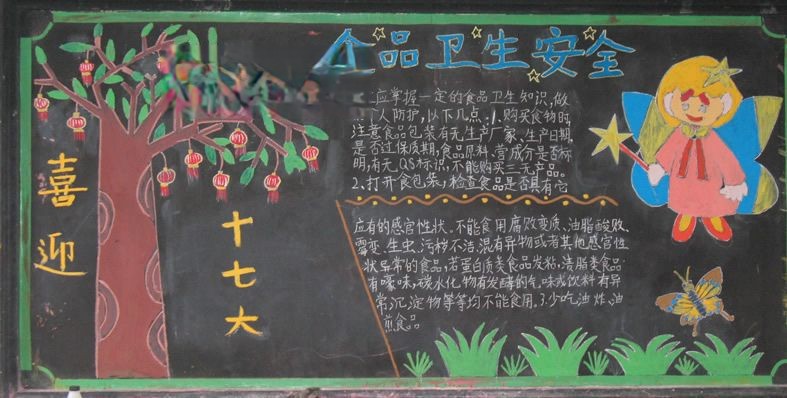 喜迎
十七大
食品卫生安全
应掌握一定的食品卫生知识,做
人防护,以下几点:1、购买食物时,
注意食品包装有无生产厂家、生产日期,
是否过保质期,食品原料、营成分是否标
明,有无QS标识,不能购买三无产品。
2、打开食包装,检查食品是否具有它
应有的感官性状。不能食用腐败变质、油脂酸败、
霉变、生虫、污秽不洁、混有异物或者其他感官性
状异常的食品,若蛋白质类食品发粘,渍脂类食品
有嚎味,碳水化物有发酵的气味或饮料有异
常沉淀物等等均不能食用。3.少吃油炸、油
煎食品